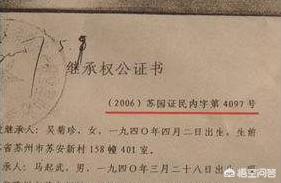 继承权公证书
(2006)苏国证民内字第4097号
承人：吴菊珍，女，一九四〇年四月二日出生，生前
省苏州市苏安新村158幢401室。
承人：马起武，男，一九四〇年三月二十八日出生，
悟空问答